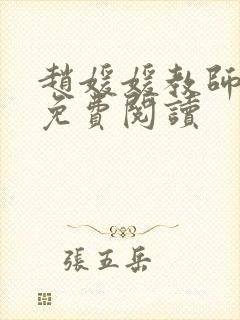 趙媛媛教師
免費閱讀
張五岳